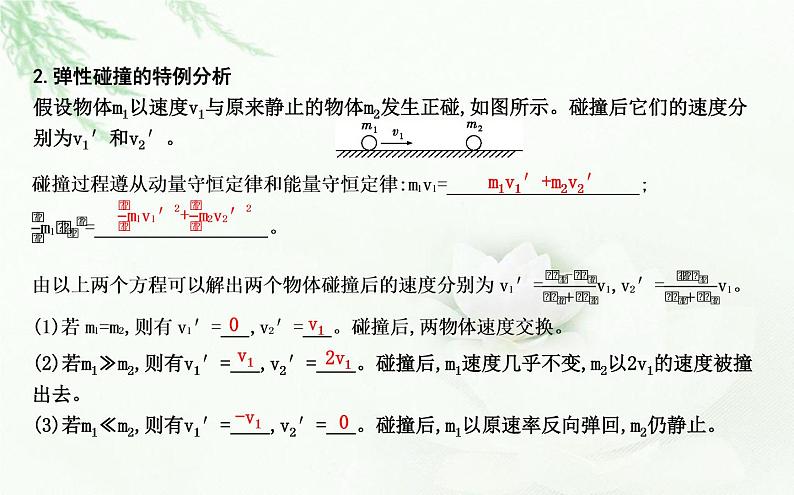 2.弹性碰撞的特例分析
假设物体m₁以速度v₁与原来静止的物体m₂发生正碰,如图所示。碰撞后它们的速度分
别为v₁′和v₂′。
m₁ v₁ m₂
碰撞过程遵从动量守恒定律和能量守恒定律:m₁v₁= m₁v₁′+m₂v₂′ ;
m₁ = m₁v₁′²+ m₂v₂′² 。
由以上两个方程可以解出两个物体碰撞后的速度分别为 v₁′= v₁,v₂′= v₁。
(1)若 m₁=m₂,则有 v₁′= 0 ,v₂′= v₁ 。碰撞后,两物体速度交换。
(2)若m₁≫m₂,则有v₁′= v₁ ,v₂′= 2v₁ 。碰撞后,m₁速度几乎不变,m₂以2v₁的速度被撞
出去。
(3)若m₁≪m₂,则有v₁′= -v₁ ,v₂′= 0 。碰撞后,m₁以原速率反向弹回,m₂仍静止。